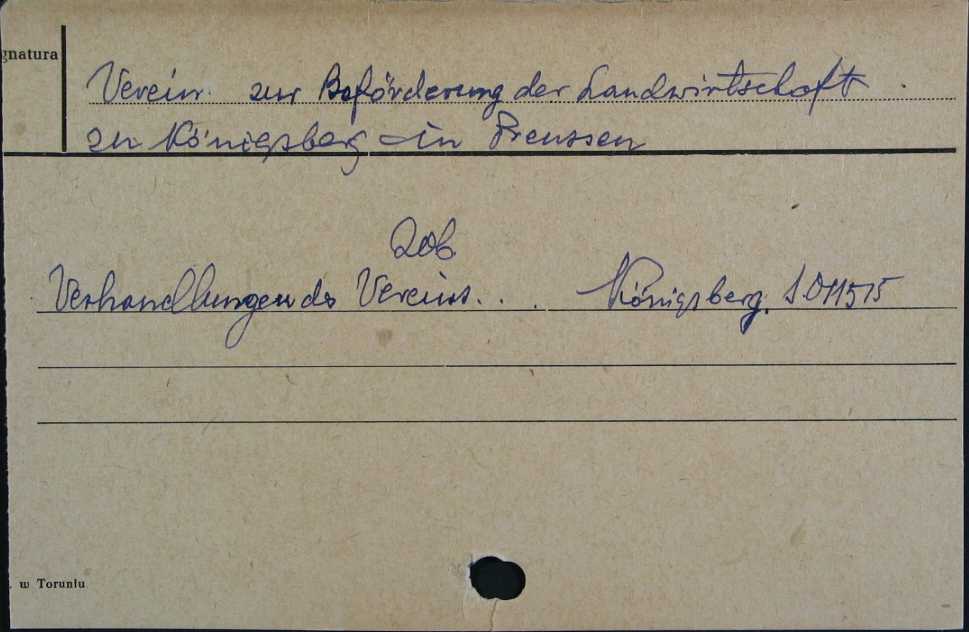 gnatura
Verein zur Beförderung der Landwirtschaft
zu Königsberg in Preussen
Zob
Verhandlungen des Vereins... Königsberg. S. 011515
. w Toruniu